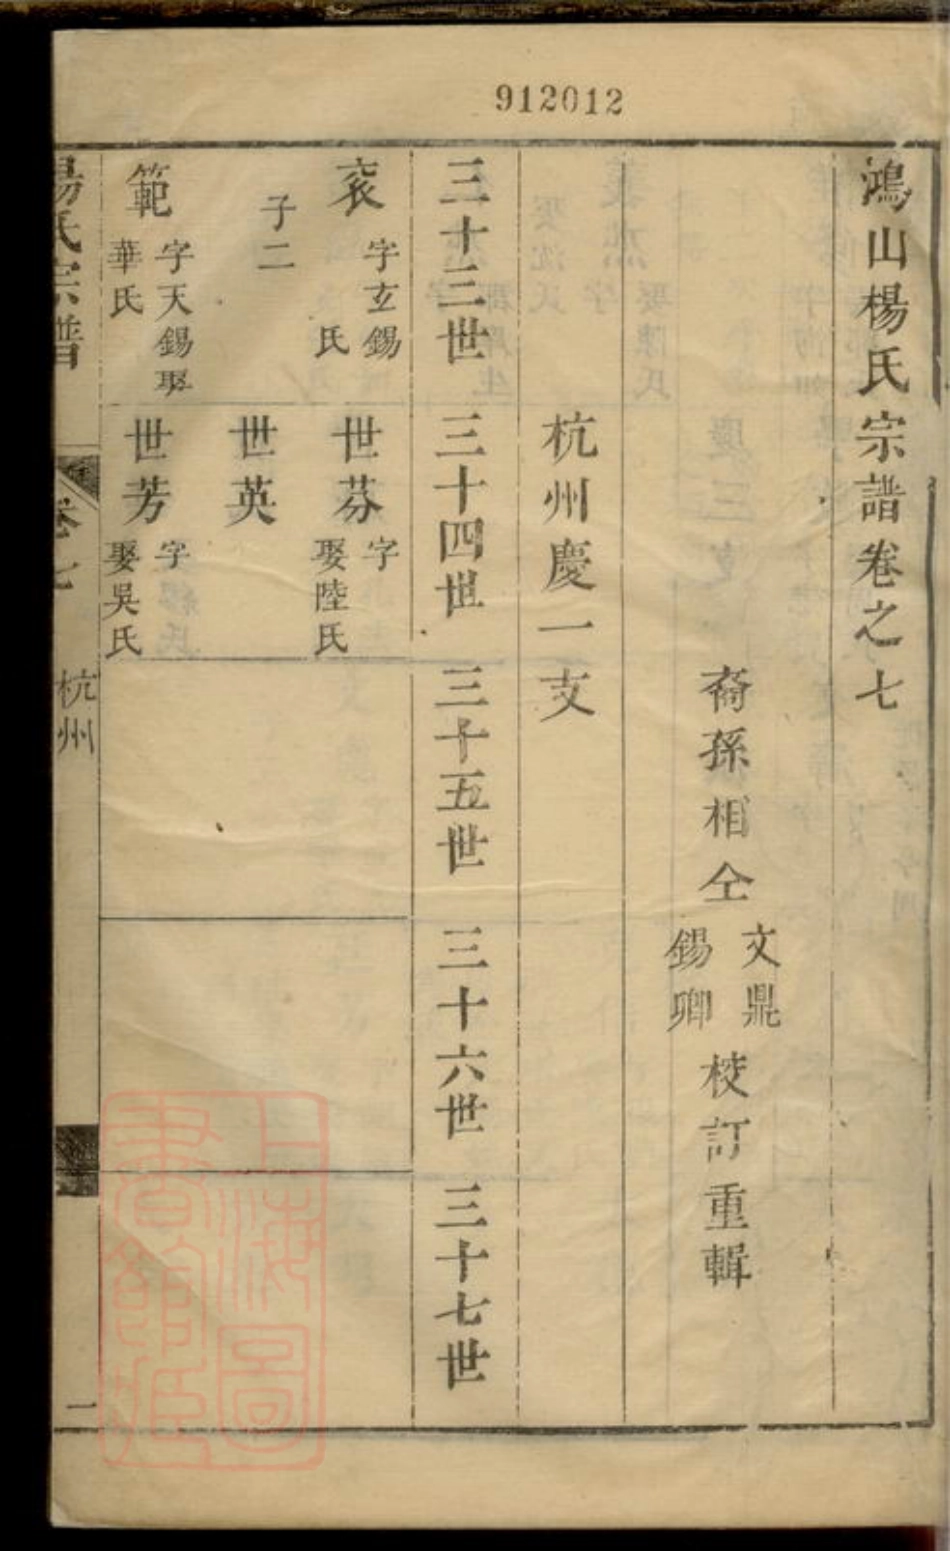 912012
鴻山楊氏宗譜卷之七
裔孫相仝
文鼎
錫卿
校訂重輯
杭州慶一支
三十三世
三十四世
三十五世
三十六世
三十七世
袞
字玄錫
氏
子二
世芬
字
娶陸氏
世英
範
字天錫娶
華氏
世芳
字
娶吳氏
楊氏宗譜
卷七
杭州
一
上海圖
書館藏